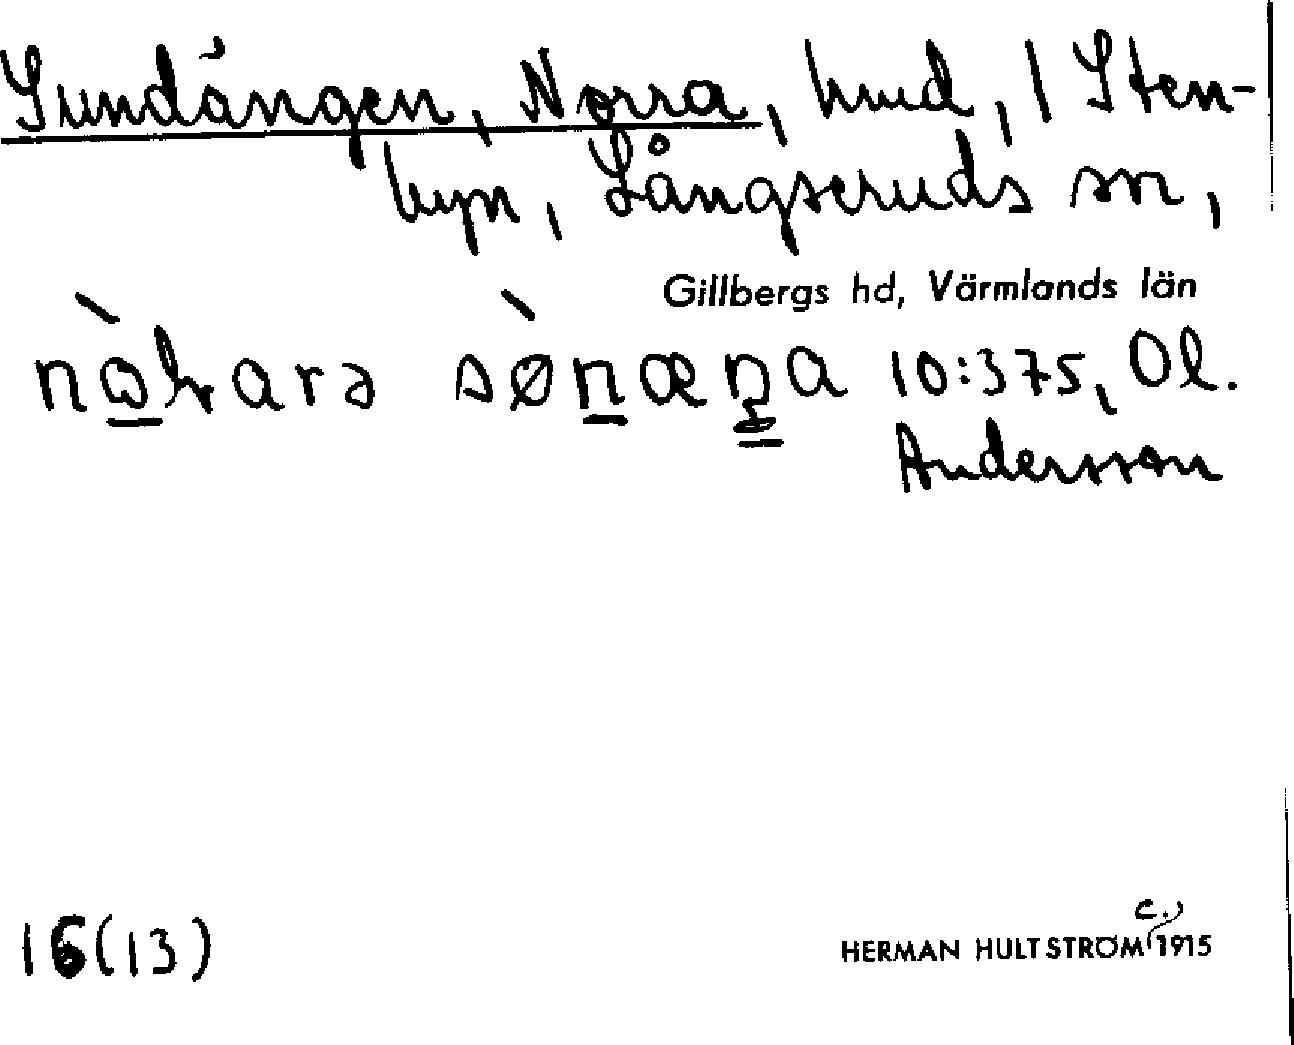 Sundängen, Norra, hmd, 1 Sten-
byn, Långseruds sn,
Gillbergs hd, Värmlands län
10:375, Ol.
Andersson
16(13)
c.,
HERMAN HULTSTRÖM 1915